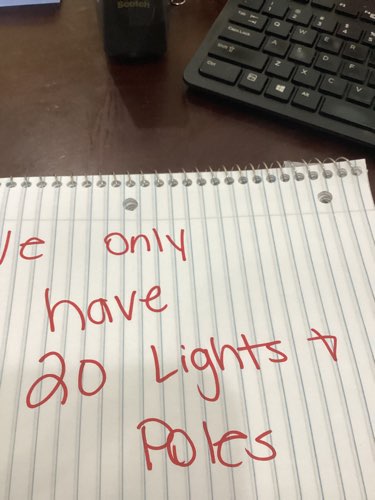 Scotch
ve only
have
20 Lights +
Poles